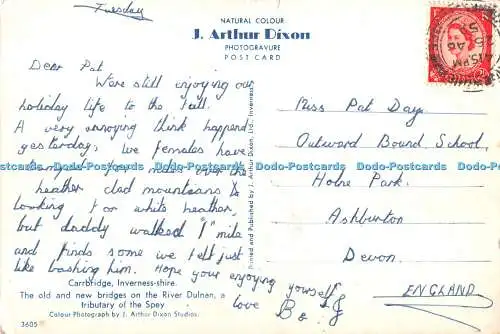 Tuesday
NATURAL COLOUR
J. Arthur Dixon
PHOTOGRAVURE
POST CARD
Dear Pat
Were still enjoying our
holiday life to the full.
A very annoying think happened
yesterday, we females have
miles over the
heather clad mountains &
looking for white heather,
but daddy walked "1" mile
and finds some we felt just
like bashing him. Hope your enjoying yourself
love
B & J
Carrbridge, Inverness-shire.
The old and new bridges on the River Dulnan, a
tributary of the Spey
Colour Photograph by J. Arthur Dixon Studios.
3605
Printed and Published by J. Arthur Dixon, Ltd., Inverness
Miss Pat Day
Outward Bound School,
Holne Park.
Ashburton
Devon.
ENGLAND
4:15 PM
Dodo-Postcards Dodo-Postcards Dodo-Postcards Dodo-Postcards Dodo-Postcards